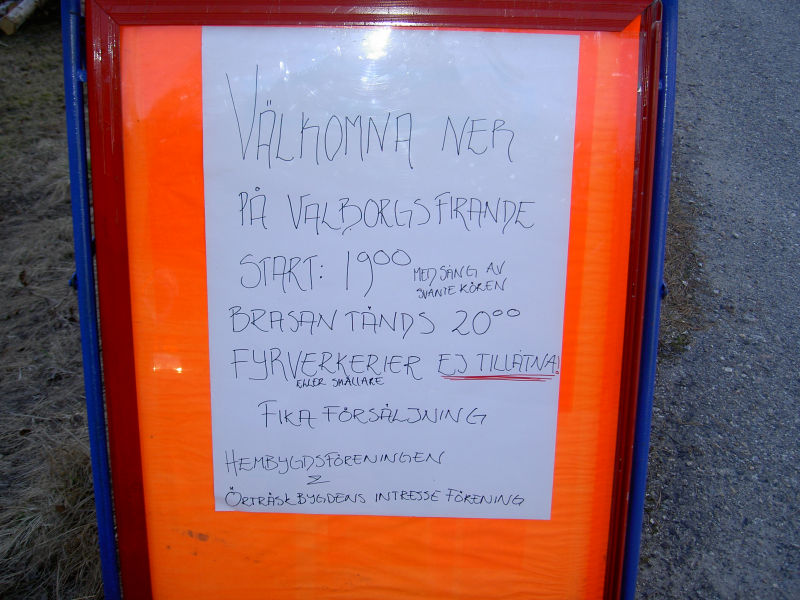 VÄLKOMNA NER
PÅ VALBORGSFIRANDE
START: 19⁰⁰ MED SÅNG AV
SVANTEKÖREN
BRASAN TÄNDS 20⁰⁰
FYRVERKERIER EJ TILLÅTNA!
ELLER SMÄLLARE
FIKA FÖRSÄLJNING
HEMBYGDSFÖRENINGEN
&
ÖRTRÄSKBYGDENS INTRESSE FÖRENING